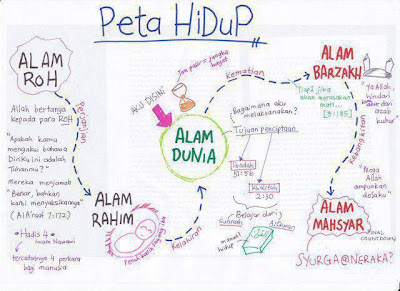 Peta HiDuP
ALAM
ROH
Allah bertanya
kepada para ROH
"Apakah kamu
mengakui bahawa
Diriku ini adalah
Tuhanmu?"
Mereka menjawab
"Benar, bahkan
kami menyaksikannya"
(Al A'raf 7:172)
• Hadis 4 •
Imam Nawawi
tercatatnya 4 perkara
bagi manusia
perjanjian
ALAM
RAHIM
Penuh kasih sayang
Kelahiran
AKU DISINI
Jam pasir = jangka
hayat
ALAM
DUNiA
Kematian
Bagaimana aku
melaksanakan?
Tujuan penciptaan
Ibadah
51:56
Khalifah
2:30
Belajar dari;
Sunnah
AlQuran
manual
hidup
ALAM
BARZAKH
Tiap2 jiwa
akan merasakan
mati...
[3:185]
"Ya Allah,
hindari
dari
azab
kubur"
Kebangkitan
"Moga
Allah
ampunkan
dosaku"
ALAM
MAHSYAR
FINAL
COUNTDOWN
SYURGA@NERAKA?